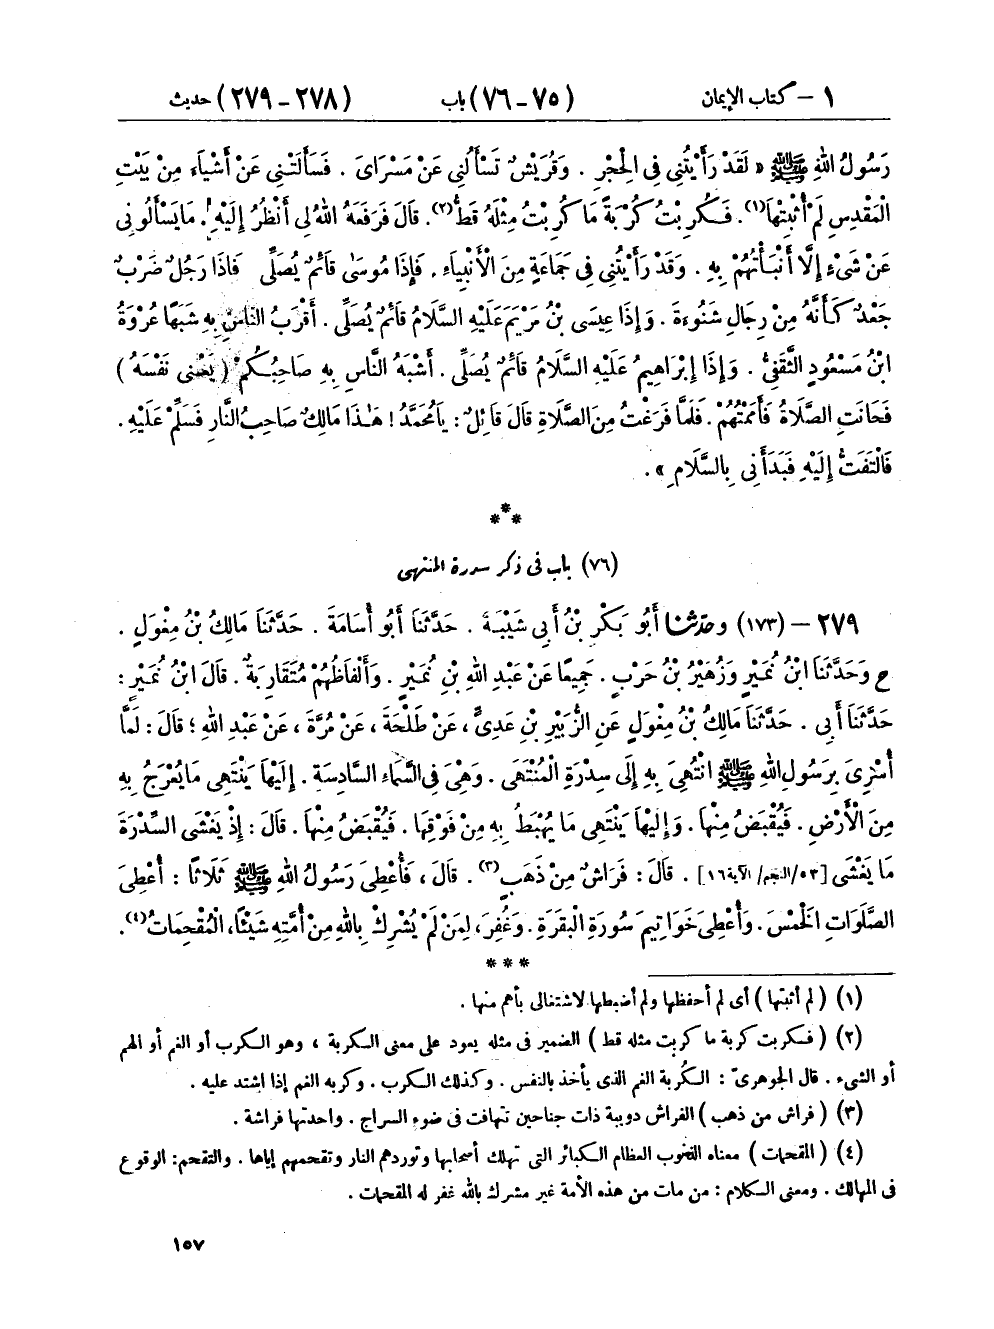 ١ - كتاب الإيمان (٧٥-٧٦) باب (٢٧٨-٢٧٩) حديث
رَسُولُ اللهِ ﷺ « لَقَدْ رَأَيْتُنِي فِي الْحِجْرِ . وَقُرَيْشٌ تَسْأَلُنِي عَنْ مَسْرَايَ . فَسَأَلَتْنِي عَنْ أَشْيَاءَ مِنْ بَيْتِ
الْمَقْدِسِ لَمْ أُثْبِتْهَا(١). فَكُرِبْتُ كُرْبَةً مَا كُرِبْتُ مِثْلَهُ قَطُّ(٢). قَالَ فَرَفَعَهُ اللهُ لِي أَنْظُرُ إِلَيْهِ. مَا يَسْأَلُونِي
عَنْ شَيْءٍ إِلَّا أَنْبَأْتُهُمْ بِهِ . وَقَدْ رَأَيْتُنِي فِي جَمَاعَةٍ مِنَ الْأَنْبِيَاءِ . فَإِذَا مُوسَى قَائِمٌ يُصَلِّي فَإِذَا رَجُلٌ ضَرْبٌ
جَعْدٌ كَأَنَّهُ مِنْ رِجَالِ شَنُوءَةَ . وَإِذَا عِيسَى بْنُ مَرْيَمَ عَلَيْهِ السَّلَامُ قَائِمٌ يُصَلِّي . أَقْرَبُ النَّاسِ بِهِ شَبَهًا عُرْوَةُ
ابْنُ مَسْعُودٍ الثَّقَفِيُّ . وَإِذَا إِبْرَاهِيمُ عَلَيْهِ السَّلَامُ قَائِمٌ يُصَلِّي . أَشْبَهُ النَّاسِ بِهِ صَاحِبُكُمْ ( يَعْنِي نَفْسَهُ )
فَحَانَتِ الصَّلَاةُ فَأَمَمْتُهُمْ . فَلَمَّا فَرَغْتُ مِنَ الصَّلَاةِ قَالَ قَائِلٌ : يَا مُحَمَّدُ ! هَٰذَا مَالِكٌ صَاحِبُ النَّارِ فَسَلِّمْ عَلَيْهِ .
فَالْتَفَتُّ إِلَيْهِ فَبَدَأَنِي بِالسَّلَامِ » .
***
(٧٦) باب في ذكر سدرة المنتهى
٢٧٩ - (١٧٣) وحدثنا أَبُو بَكْرِ بْنُ أَبِي شَيْبَةَ . حَدَّثَنَا أَبُو أُسَامَةَ . حَدَّثَنَا مَالِكُ بْنُ مِغْوَلٍ .
ح وَحَدَّثَنَا ابْنُ نُمَيْرٍ وَزُهَيْرُ بْنُ حَرْبٍ . جَمِيعًا عَنْ عَبْدِ اللهِ بْنِ نُمَيْرٍ . وَأَلْفَاظُهُمْ مُتَقَارِبَةٌ . قَالَ ابْنُ نُمَيْرٍ :
حَدَّثَنَا أَبِي . حَدَّثَنَا مَالِكُ بْنُ مِغْوَلٍ عَنِ الزُّبَيْرِ بْنِ عَدِيٍّ ، عَنْ طَلْحَةَ ، عَنْ مُرَّةَ ، عَنْ عَبْدِ اللهِ ؛ قَالَ : لَمَّا
أُسْرِيَ بِرَسُولِ اللهِ ﷺ انْتُهِيَ بِهِ إِلَى سِدْرَةِ الْمُنْتَهَى . وَهِيَ فِي السَّمَاءِ السَّادِسَةِ . إِلَيْهَا يَنْتَهِي مَا يُعْرَجُ بِهِ
مِنَ الْأَرْضِ . فَيُقْبَضُ مِنْهَا . وَإِلَيْهَا يَنْتَهِي مَا يُهْبَطُ بِهِ مِنْ فَوْقِهَا . فَيُقْبَضُ مِنْهَا . قَالَ : إِذْ يَغْشَى السِّدْرَةَ
مَا يَغْشَى [٥٣/النجم/ الآية ١٦] . قَالَ : فَرَاشٌ مِنْ ذَهَبٍ(٣) . قَالَ ، فَأُعْطِيَ رَسُولُ اللهِ ﷺ ثَلَاثًا : أُعْطِيَ
الصَّلَوَاتِ الْخَمْسَ . وَأُعْطِيَ خَوَاتِيمَ سُورَةِ الْبَقَرَةِ . وَغُفِرَ، لِمَنْ لَمْ يُشْرِكْ بِاللهِ مِنْ أُمَّتِهِ شَيْئًا، الْمُقْحِمَاتُ(٤).
***
(١) ( لم أثبتها ) أى لم أحفظها ولم أضبطها لاشتغالى بأهم منها .
(٢) ( فكربت كربة ما كربت مثله قط ) الضمير فى مثله يعود على معنى الكربة ، وهو الكرب أو الغم أو الهم
أو الشىء . قال الجوهرىّ : الكُربة الغم الذى يأخذ بالنفس . وكذلك الكرب . وكربه الغم إذا اشتد عليه .
(٣) ( فراش من ذهب ) الفراش دويبة ذات جناحين تتهافت فى ضوء السراج . واحدتها فراشة .
(٤) ( المقحمات ) معناه الذنوب العظام الكبائر التى تهلك أصحابها وتوردهم النار وتقحمهم إياها . والتقحم: الوقوع
فى المهالك . ومعنى الكلام : من مات من هذه الأمة غير مشرك بالله غفر له المقحمات .
١٥٧